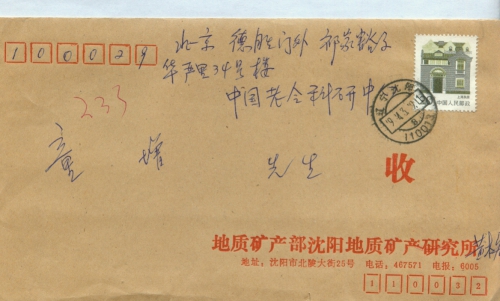 100029
北京 德胜门外 祁家豁子
华严里34号楼
中国老令科研中
233
童 增 先生 收
中国人民邮政
地质矿产部沈阳地质矿产研究所
地址：沈阳市北陵大街25号 电话：467571 电报：6005
110032